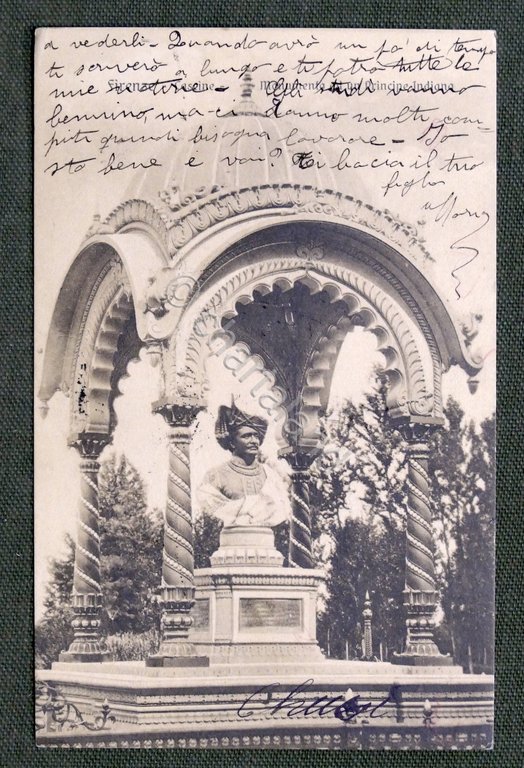 a vederli - Quando avrò un po' di tempo
ti scriverò a lungo e ti farò tutte le
Firenze - Cascine - Monumento ad un Principe Indiano
mie
benino, ma ci danno molti com-
piti quindi bisogna lavorare - Io
sto bene e voi? Ti bacia il tuo
figlio